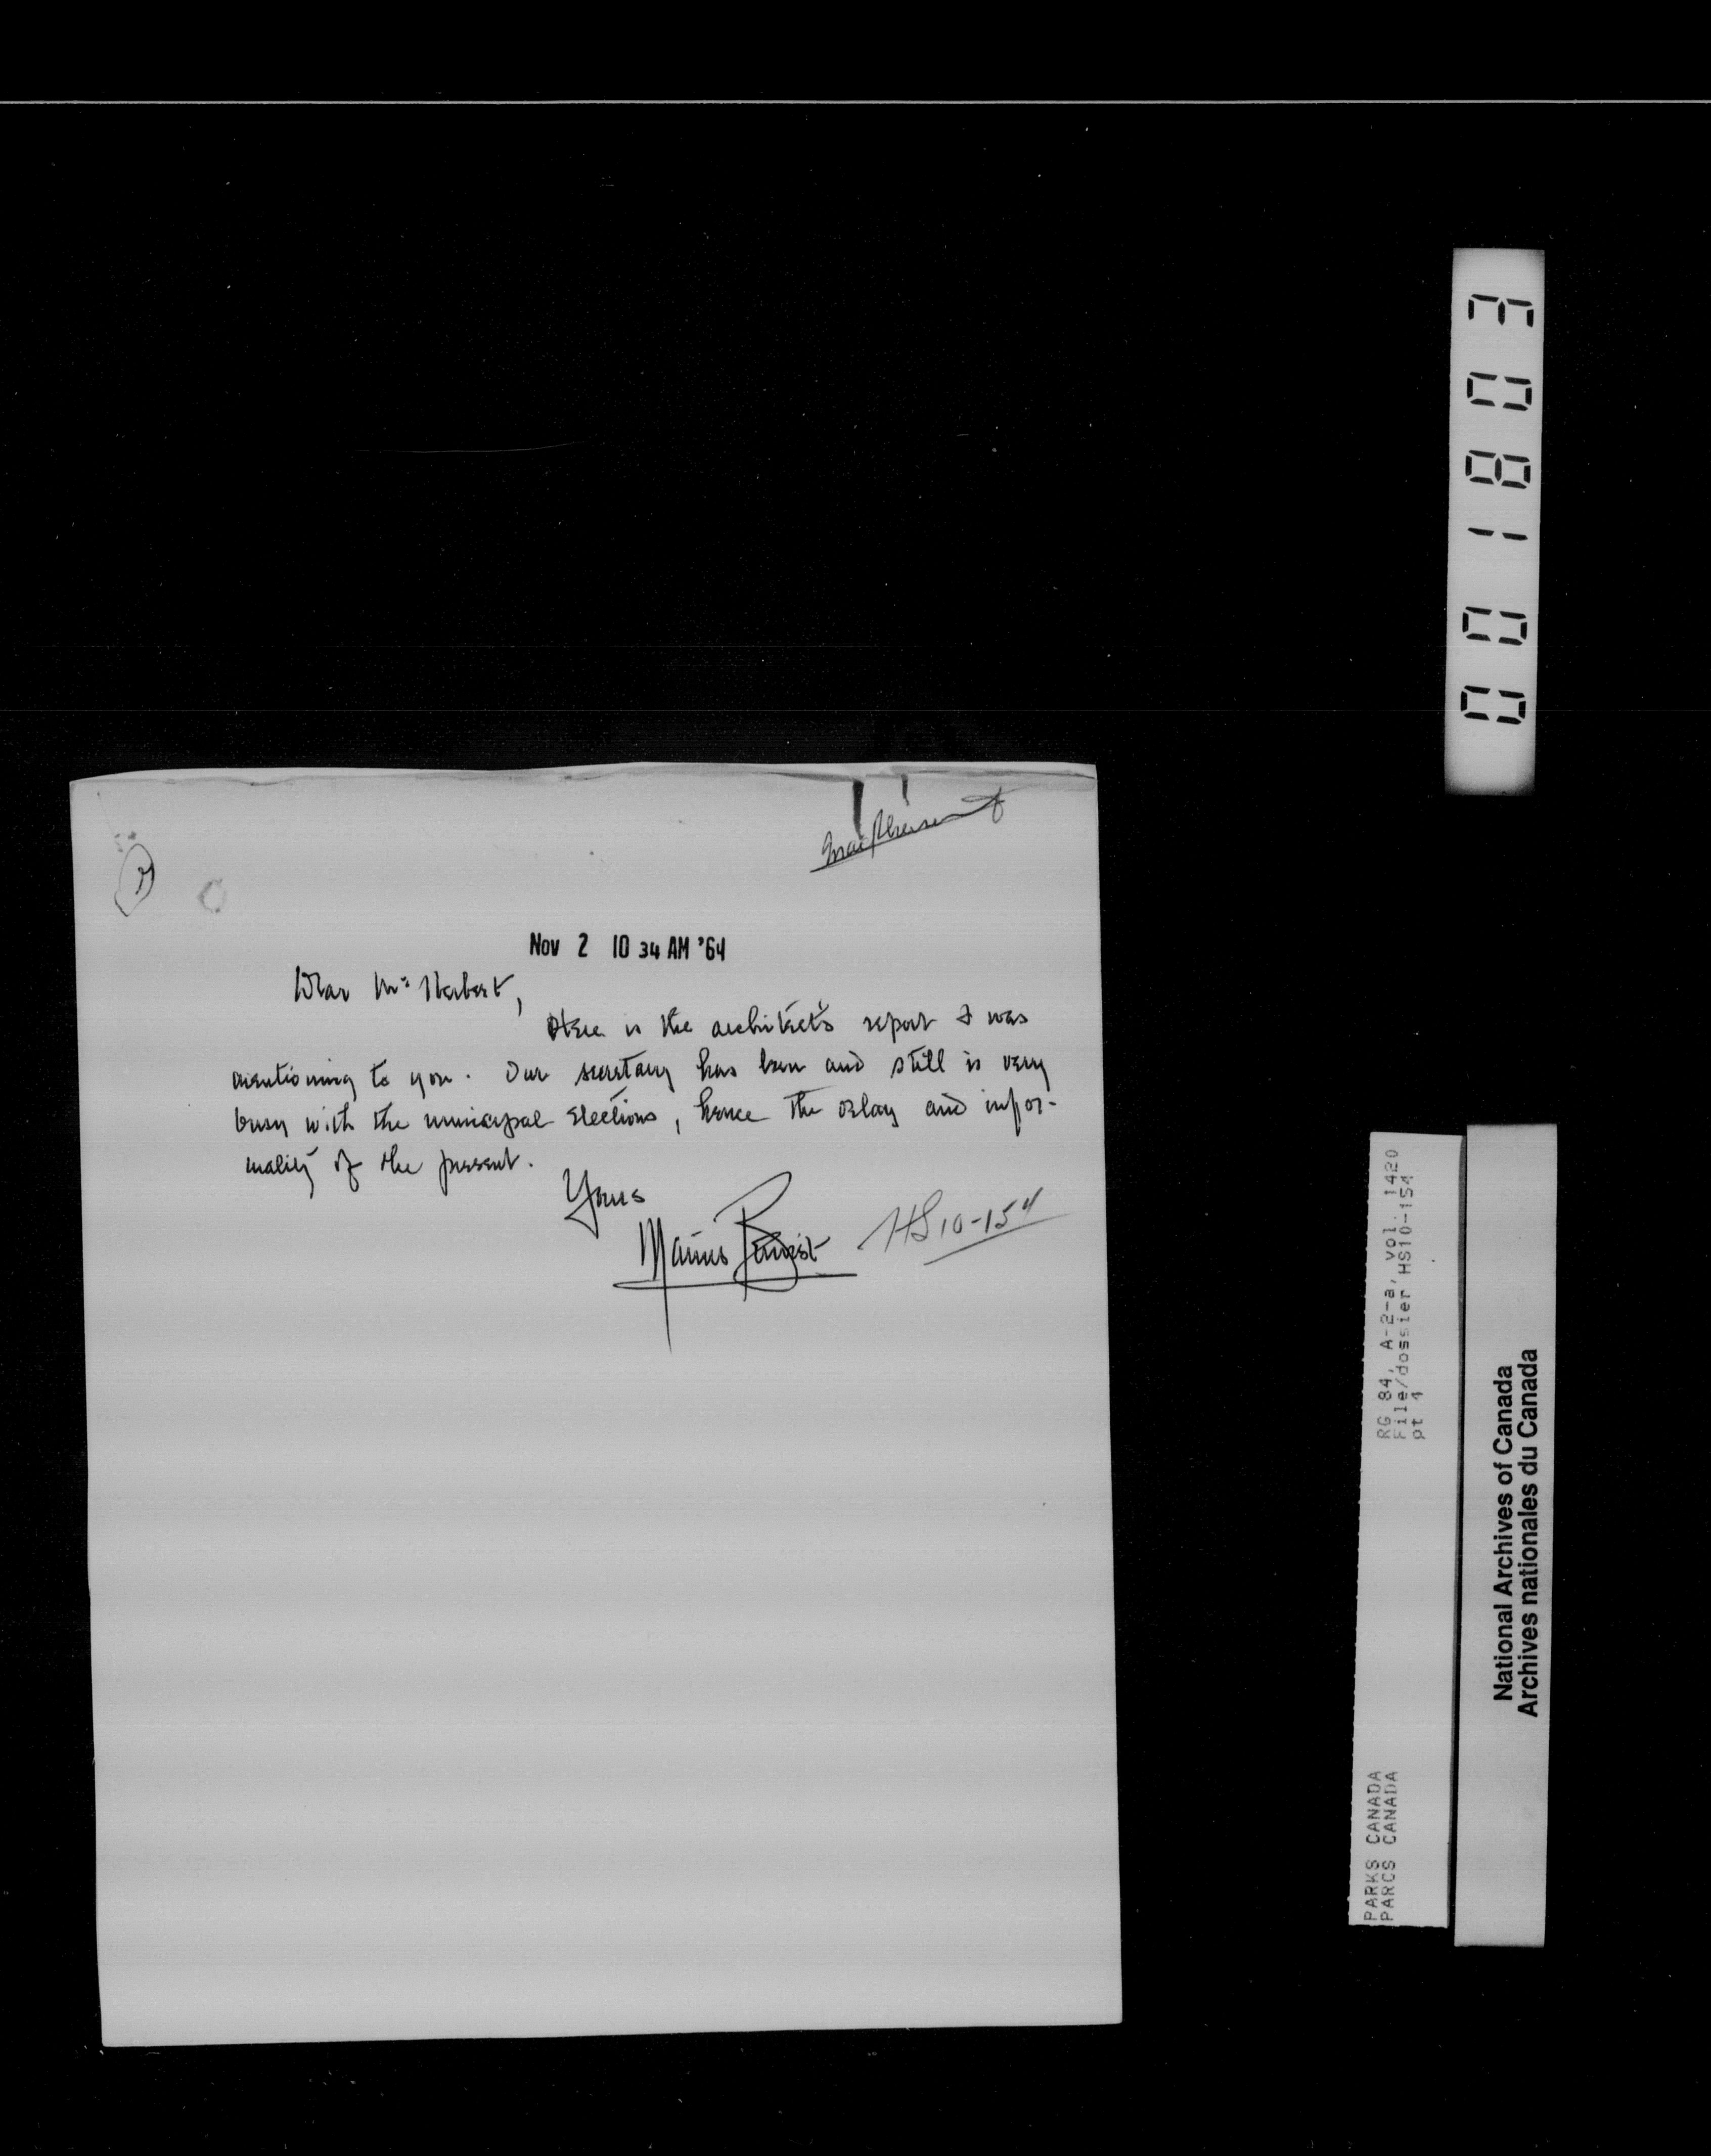 Nov 2 10 34 AM '64
Dear Mr Herbert,
Here is the architect's report I was
mentioning to you. Our secretary has been and still is very
busy with the municipal elections, hence the delay and infor-
mality of the present.
Yours
Marius Benoist
HS10-154
00 1803
RG 84, A-2-a, vol. 1420
File/dossier HS10-154
pt 4
PARKS CANADA
PARCS CANADA
National Archives of Canada
Archives nationales du Canada